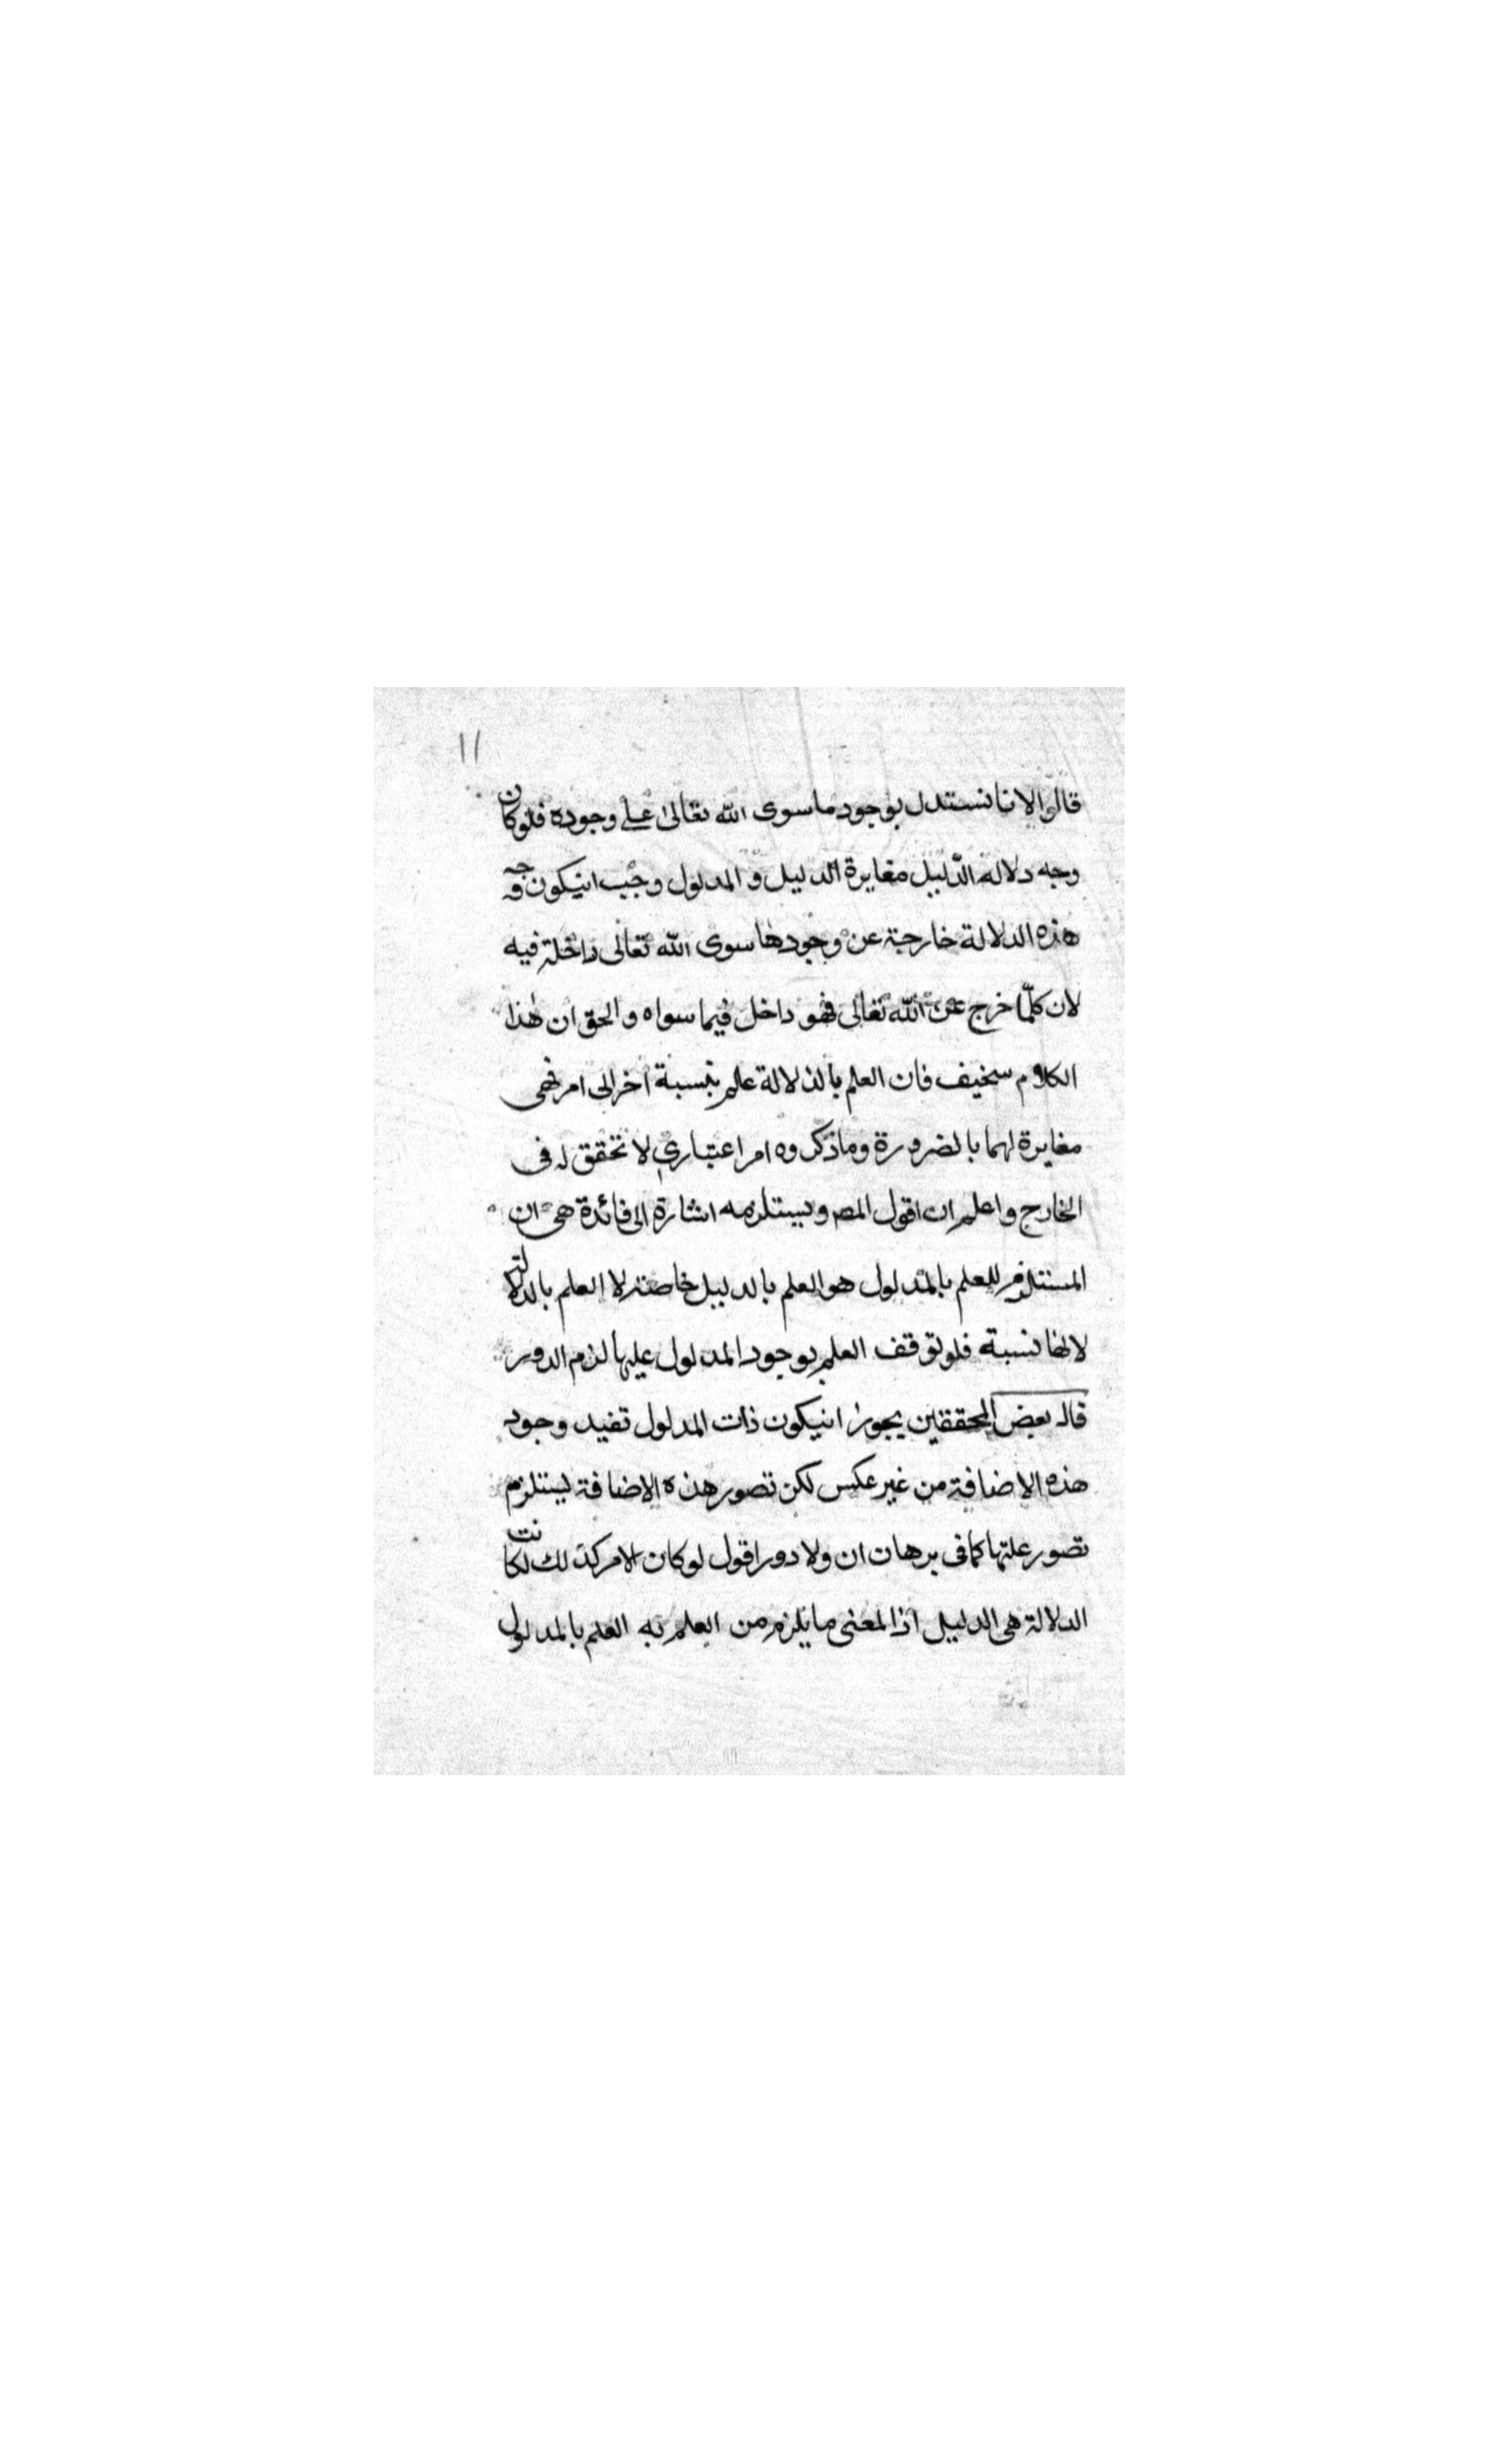 ١١
قالوا لانا نستدل بوجود ما سوى الله تعالى على وجوده فلو كان
وجه دلالة الدّليل مغايرة الدليل و المدلول وجب انيكون وجه
هذه الدلالة خارجة عن وجود ما سوى الله تعالى داخلة فيه
لان كلّما خرج عن الله تعالى فهو داخل فيما سواه و الحق ان هذا
الكلام سخيف فان العلم بالدلالة علم بنسبة اخر الى امر فهى
مغايرة لهما بالضرورة وما ذكروه امر اعتباري لا تحقق له فى
الخارج واعلم ان اقول المصـ ويستلزمه اشارة الى فائدة هى ان
المستلزم للعلم بالمدلول هو العلم بالدليل خاصة لا العلم بالدلالة
لانها نسبة فلو توقف العلم بوجود المدلول عليها لزم الدور
قال بعض المحققين يجوز انيكون ذات المدلول تفيد وجود
هذه الاضافة من غير عكس لكن تصور هذه الاضافة ليستلزم
تصور علتها كما فى برهان ان ولا دور اقول لو كان الامر كذلك لكانت
الدلالة هى الدليل اذ المعنى ما يلزم من العلم به العلم بالمدلول